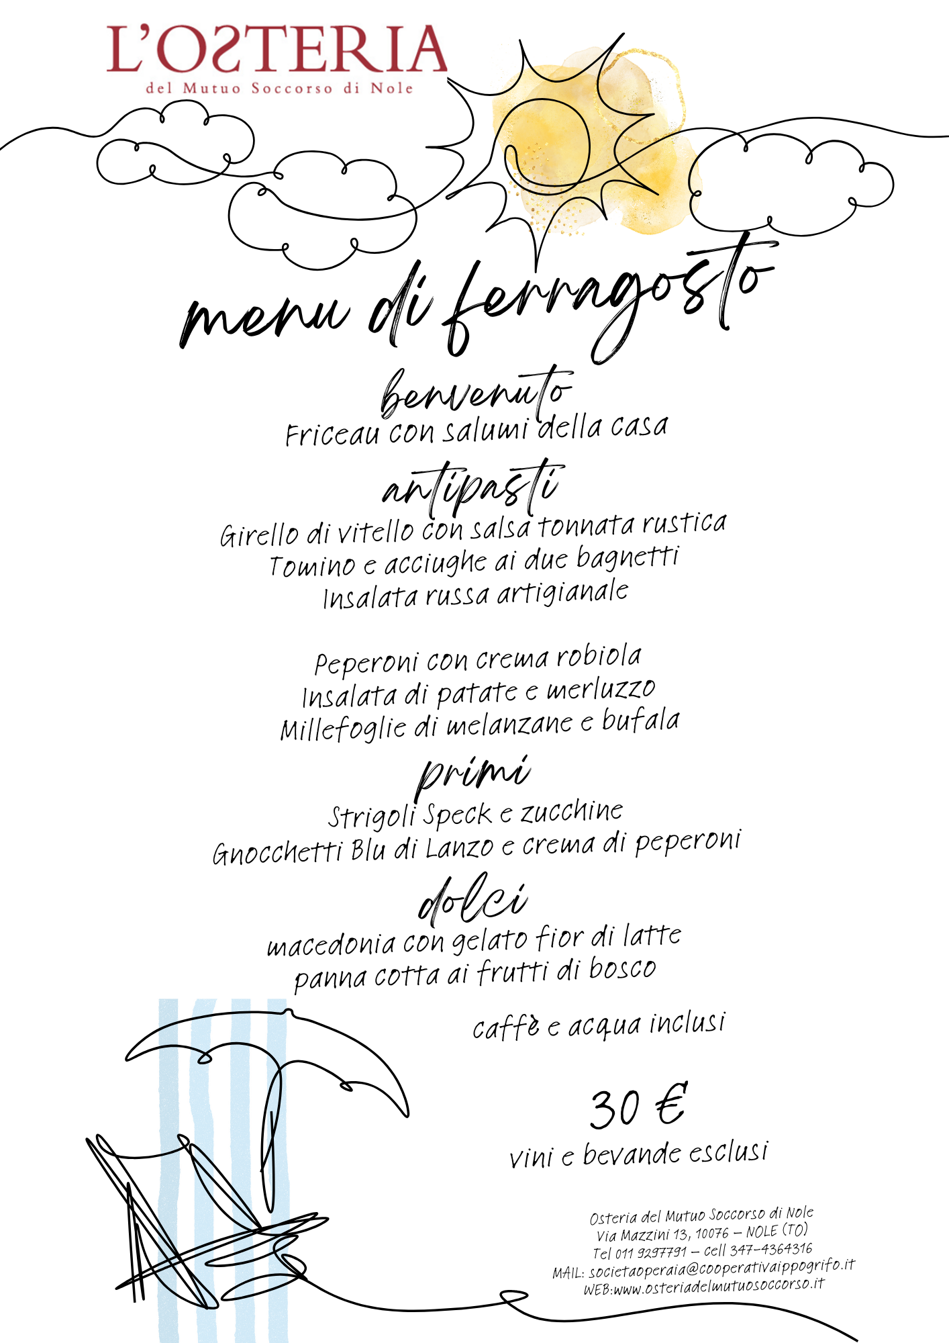 L'OSTERIA
del Mutuo Soccorso di Nole
menu di ferragosto
benvenuto
Friceau con salumi della casa
antipasti
Girello di vitello con salsa tonnata rustica
Tomino e acciughe ai due bagnetti
Insalata russa artigianale
Peperoni con crema robiola
Insalata di patate e merluzzo
Millefoglie di melanzane e bufala
primi
Strigoli Speck e zucchine
Gnocchetti Blu di Lanzo e crema di peperoni
dolci
macedonia con gelato fior di latte
panna cotta ai frutti di bosco
caffè e acqua inclusi
30 €
vini e bevande esclusi
Osteria del Mutuo Soccorso di Nole
Via Mazzini 13, 10076 – NOLE (TO)
Tel 011 9297791 – cell 347-4364316
MAIL: societaoperaia@cooperativaippogrifo.it
WEB:www.osteriadelmutuosoccorso.it